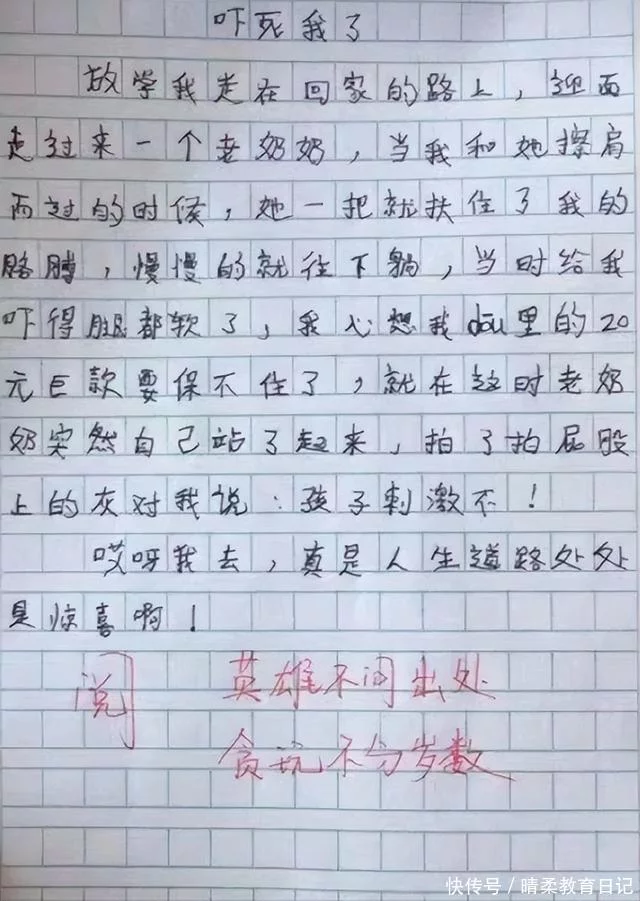 吓死我了
放学我走在回家的路上，迎面
走过来一个老奶奶，当我和她擦肩
而过的时候，她一把就扶住了我的
胳膊，慢慢的就往下躺，当时给我
吓得腿都软了，我心想我dōu里的20
元巨款要保不住了，就在这时老奶
奶突然自己站了起来，拍了拍屁股
上的灰对我说：孩子刺激不！
哎呀我去，真是人生道路处处
是惊喜啊！
阅
英雄不问出处
贪玩不分岁数
快传号／晴柔教育日记